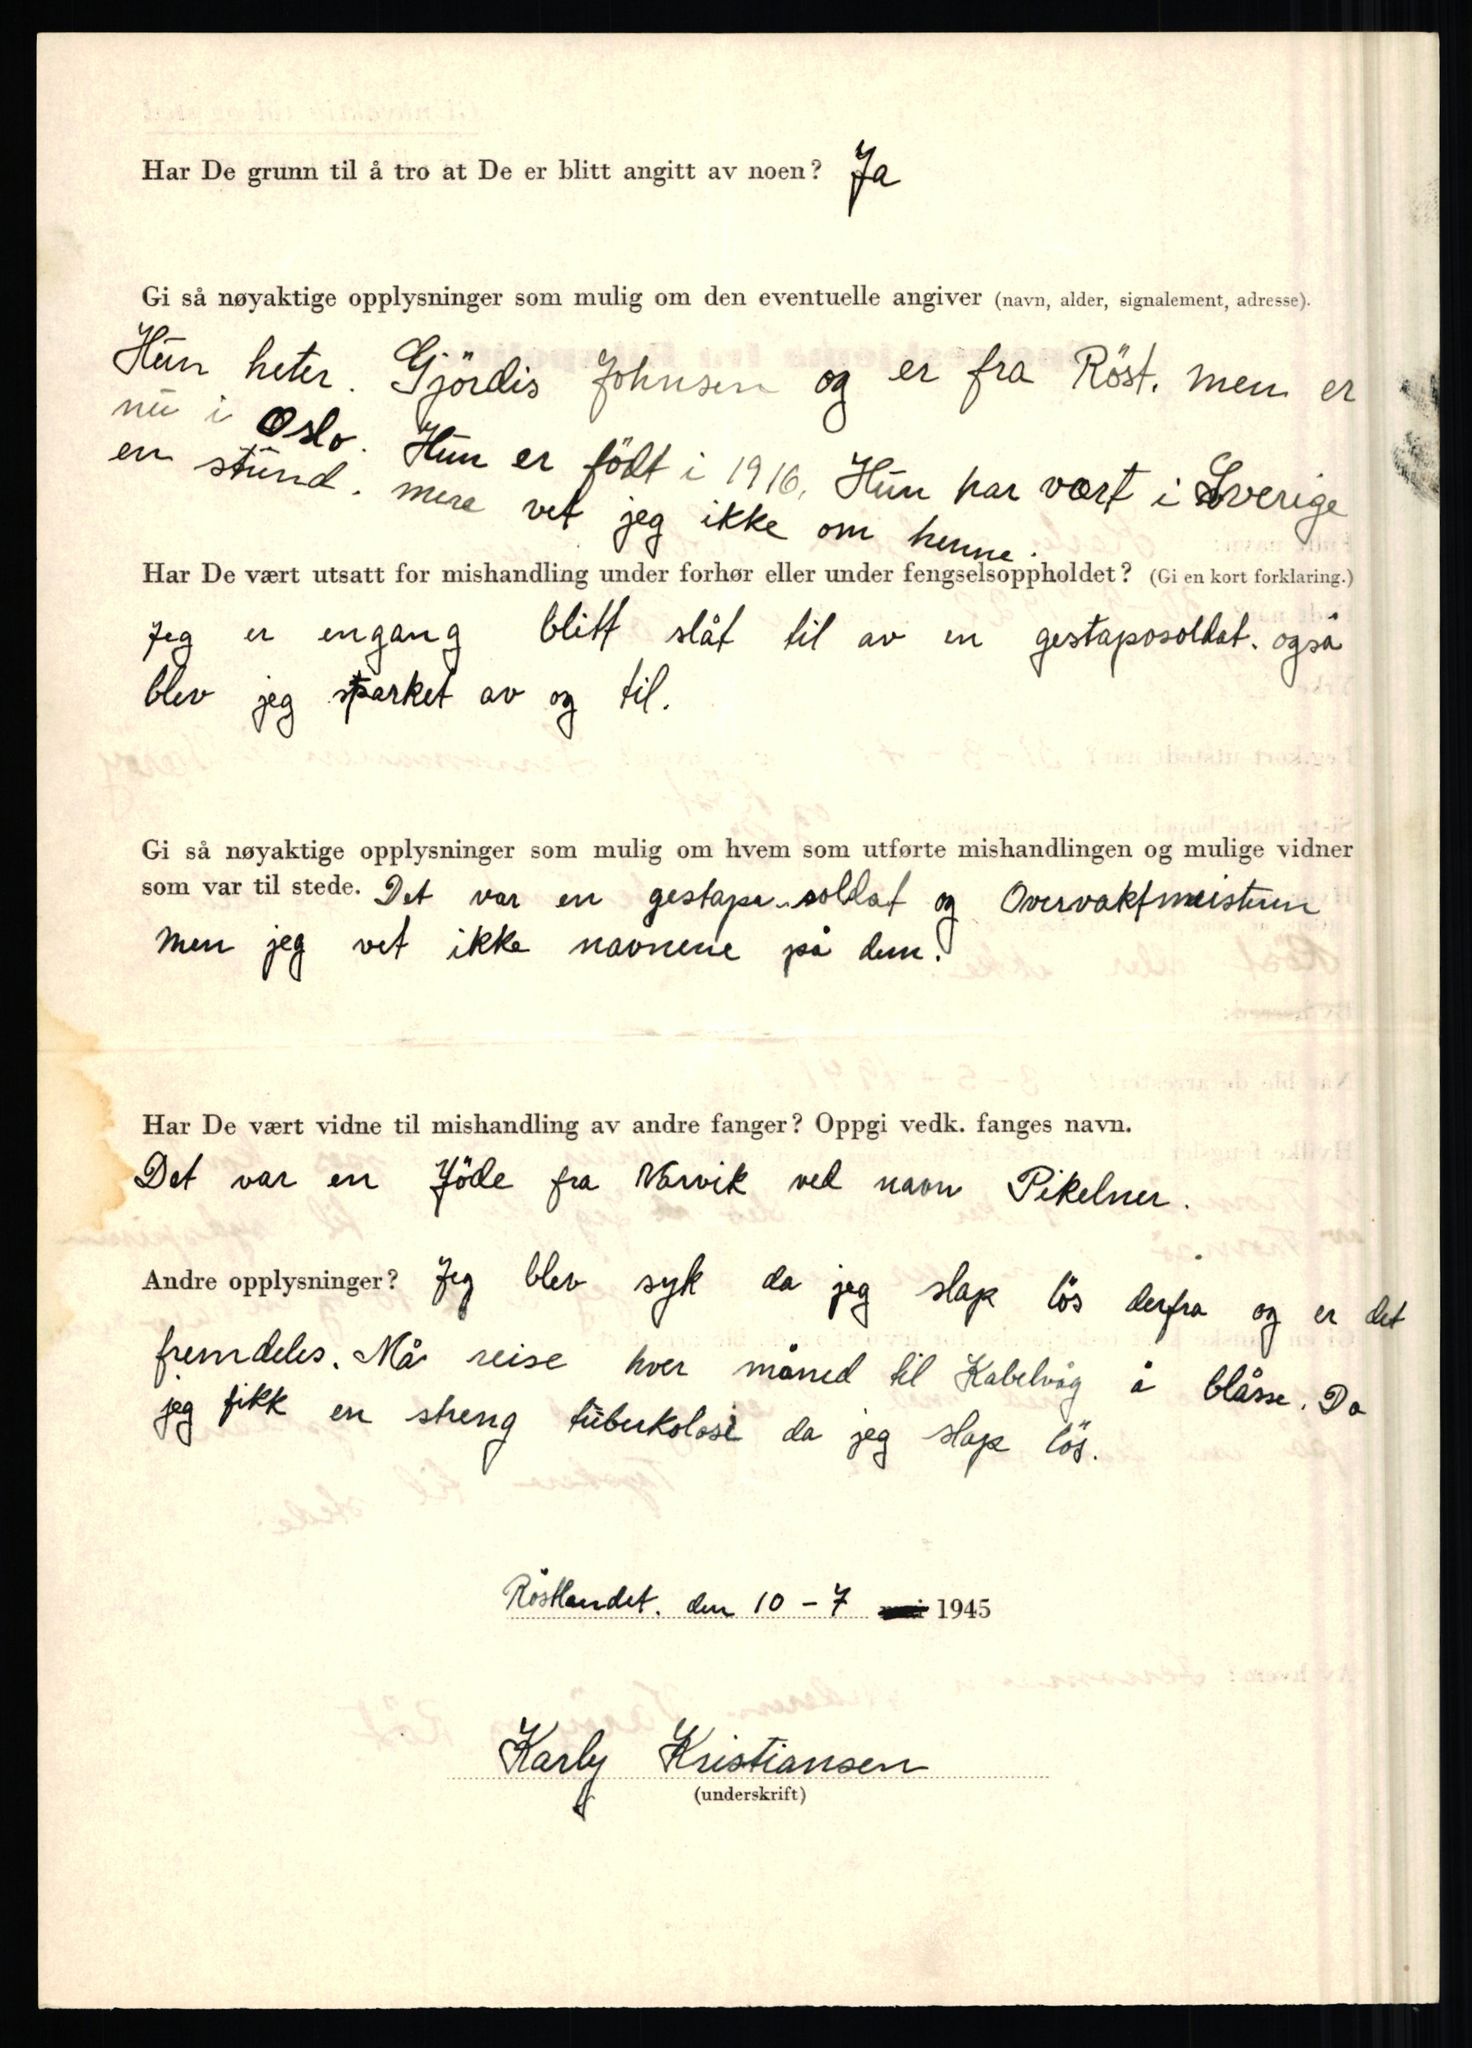 Har De grunn til å tro at De er blitt angitt av noen? Ja
Gi så nøyaktige opplysninger som mulig om den eventuelle angiver (navn, alder, signalement, adresse).
Hun heter. Gjördis Johnsen og er fra Röst. men er
nu i Oslo. Hun er födt i 1916. Hun har vært i Sverige
en stund. mere vet jeg ikke om henne.
Har De vært utsatt for mishandling under forhør eller under fengselsoppholdet? (Gi en kort forklaring.)
Jeg er engang blitt slåt til av en gestaposoldat. også
blev jeg sparket av og til.
Gi så nøyaktige opplysninger som mulig om hvem som utførte mishandlingen og mulige vidner
som var til stede. Det var en gestapo-soldat og Overvaktmeisteren
men jeg vet ikke navnene på dem.
Har De vært vidne til mishandling av andre fanger? Oppgi vedk. fanges navn.
Det var en Jöde fra Narvik ved navn Pikelner.
Andre opplysninger? Jeg blev syk da jeg slap lös derfra og er det
fremdeles. Må reise hver måned til Kabelvåg å blåsse. Da
jeg fikk en streng tuberkolose da jeg slap lös.
Röstlandet. den 10-7 1945
Karly Kristiansen
(underskrift)